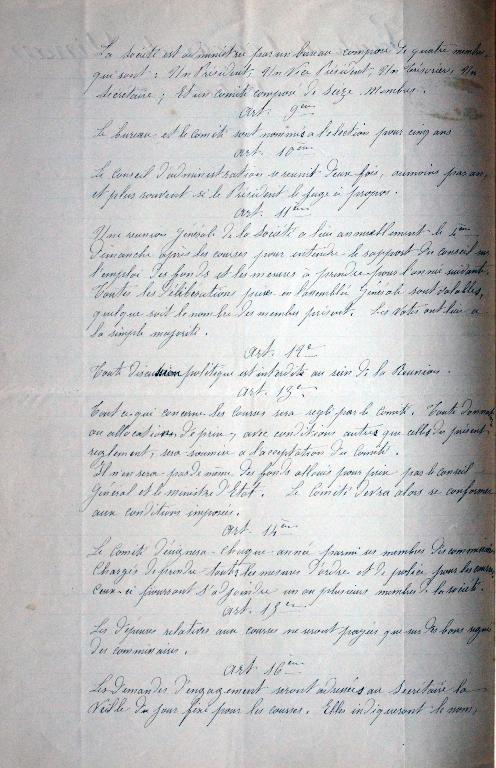 La société est administrée par un bureau composé de quatre membres
qui sont : Un Président, Un Vice Président, Un Trésorier, Un
Secrétaire ; Et un comité composé de Seize Membres.
Art. 9em
Le bureau et le Comité sont nommés à l'élection pour cinq ans
Art. 10ème
Le conseil d'administration se réunit deux fois, au moins par an,
et plus souvent si le Président le juge à propos.
Art. 11ème
Une réunion générale de la Société a lieu annuellement le
Dimanche après les courses pour entendre le rapport du Conseil sur
l'emploi des fonds et les mesures à prendre pour l'année suivante.
Toutes les délibérations prises en l'assemblée Générale sont valables,
quelque soit le nombre des membres présent. Les votes ont lieu à
la simple majorité.
Art. 12e
Toute discussion politique est interdite au sein de la Réunion.
Art. 13e
Tout ce qui concerne les Courses sera réglé par le comité. Toute
ou allocations de prix, avec conditions autres que celles du présent
règlement, sera soumise à l'acceptation du Comité.
Il n'en sera pas de même des fonds alloués pour prix par le Conseil
Général et le ministre d'Etat. Le Comité devra alors se conformer
aux conditions imposées.
Art. 14ème
Le Comité désignera chaque année parmi ses membres des commissaires
Chargés de prendre toutes les mesures d'ordre et de police pour les courses
Ceux-ci pourront s'adjoindre un ou plusieurs membres de la société.
Art. 15em
Les dépenses relatives aux courses ne seront payées que sur des bons signés
des commissaires.
Art. 16ème
Les Demandes d'engagement seront adressées au Secrétaire la
Veille du jour fixé pour les courses. Elles indiqueront le nom,